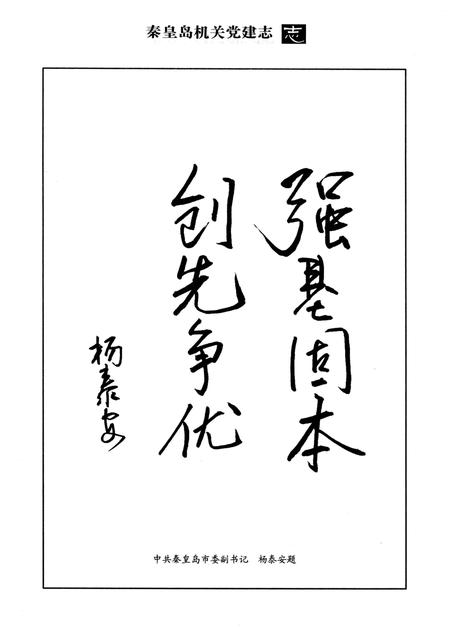 秦皇岛机关党建志 志
强基固本
创先争优
杨泰安
中共秦皇岛市委副书记 杨泰安题